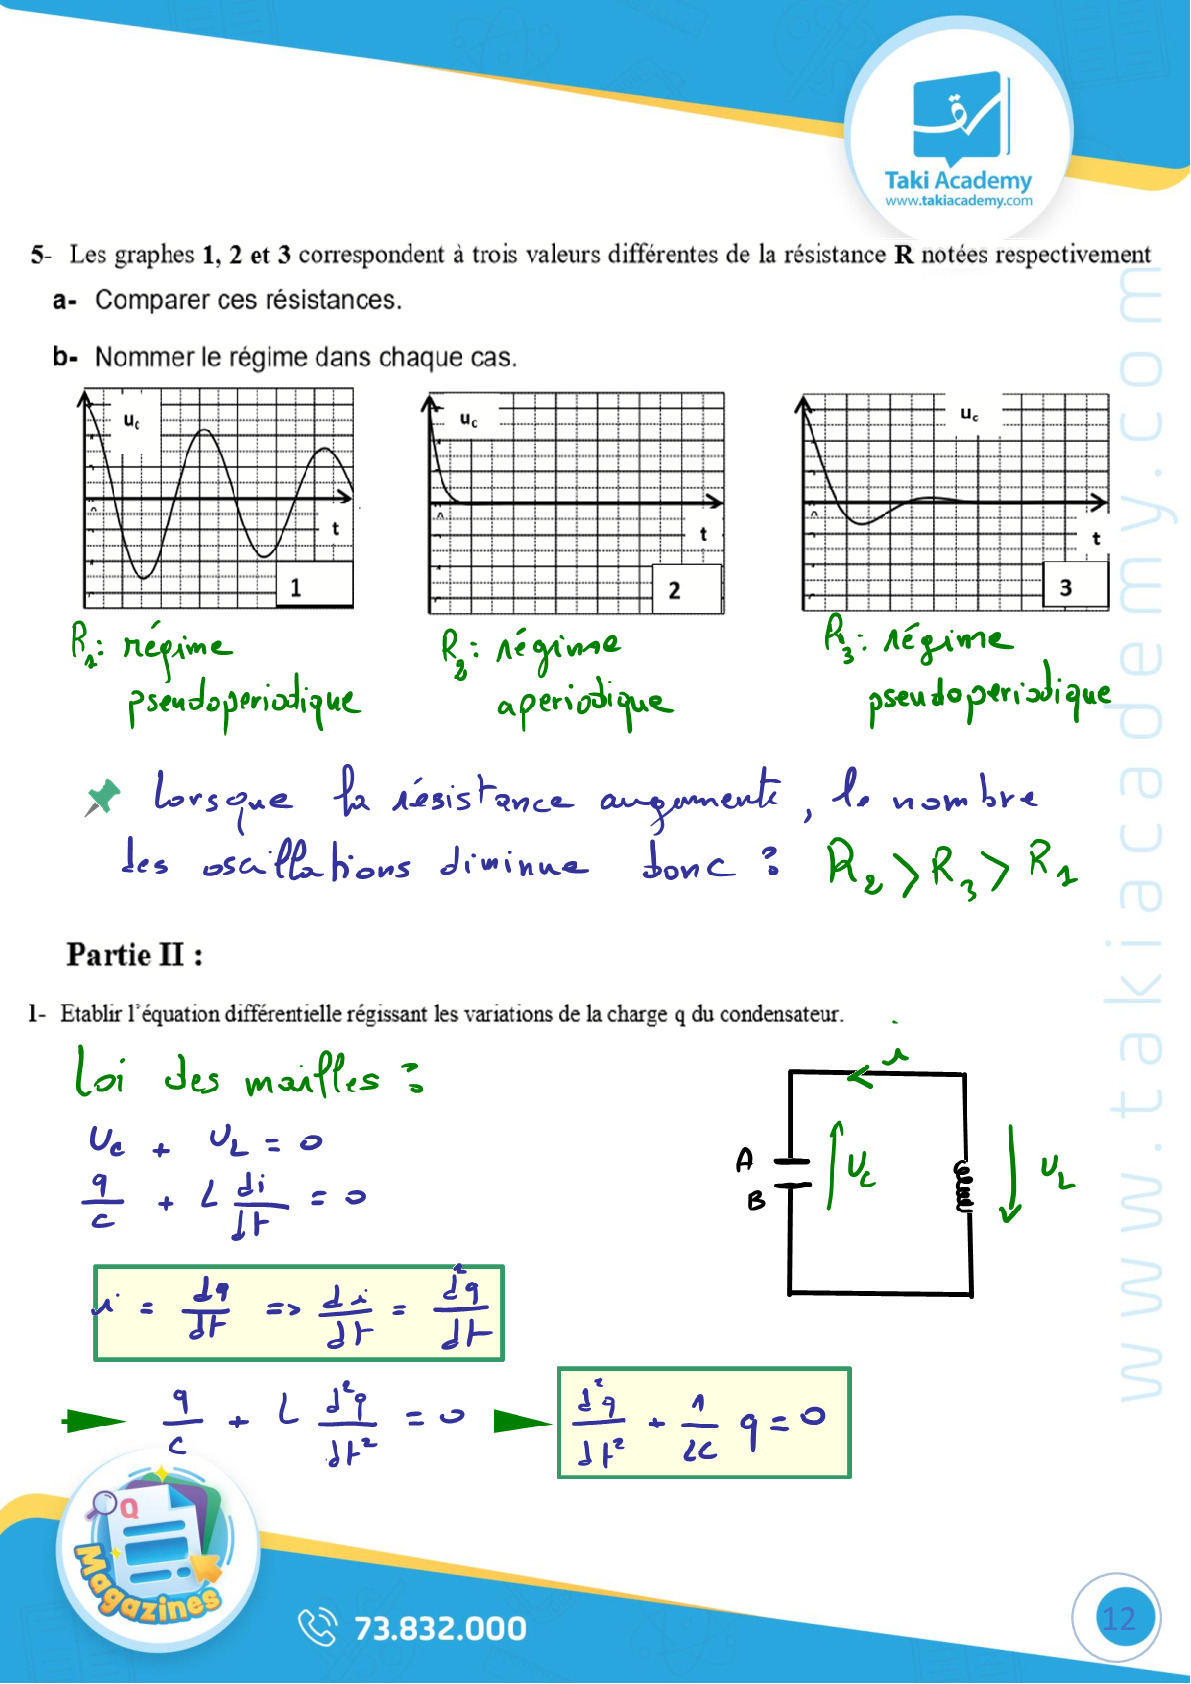 Taki Academy
www.takiacademy.com
5- Les graphes 1, 2 et 3 correspondent à trois valeurs différentes de la résistance R notées respectivement
a- Comparer ces résistances.
b- Nommer le régime dans chaque cas.
uc
t
1
uc
t
2
uc
t
3
R1: régime
pseudoperiodique
R2: régime
aperiodique
R3: régime
pseudoperiodique
Lorsque la résistance augmente, le nombre
des oscillations diminue donc : R2 > R3 > R1
Partie II :
1- Etablir l'équation différentielle régissant les variations de la charge q du condensateur.
Loi des mailles :
Uc + UL = 0
q/c + L di/dt = 0
i = dq/dt => di/dt = d²q/dt
q/c + L d²q/dt² = 0
d²q/dt² + 1/LC q = 0
i
A
B
Uc
UL
www.takiacademy.com
Q
Magazines
73.832.000
12